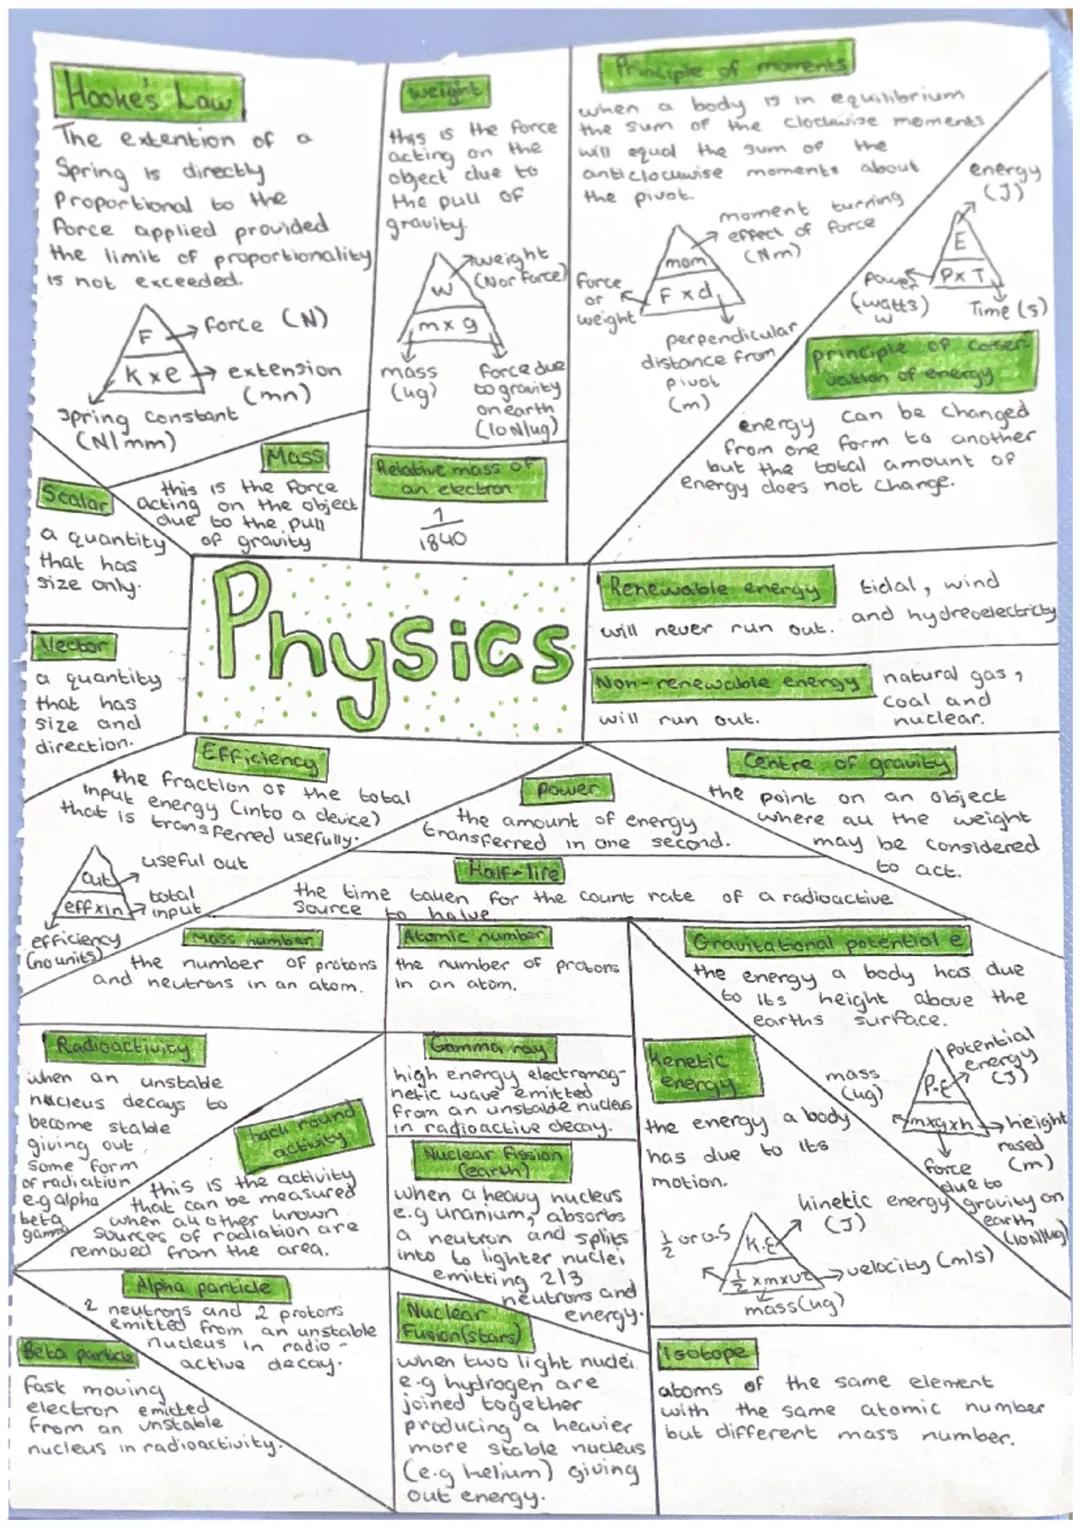 Hooke's Law
The extention of a
Spring is directly
Proportional to the
force applied provided
the limit of proportionality
is not exceeded.
F
force (N)
K x e
extension
(mn)
spring constant
(N/mm)
weight
this is the force
acting on the
object due to
the pull of
gravity.
w
weight
(N or force)
m x g
mass
(kg)
force due
to gravity
on earth
(10N/kg)
Principle of moments
when a body is in equilibrium
the sum of the clockwise moments
will equal the sum of the
anticlockwise moments about
the pivot.
moment turning
effect of force
(Nm)
mom
F x d
force
or
weight
perpendicular
distance from
pivot
(m)
energy
(J)
E
P x T
Power
(watts)
w
Time (s)
principle of conser-
vation of energy
energy can be changed
from one form to another
but the total amount of
energy does not change.
Scalar
a quantity
that has
size only.
Mass
this is the force
acting on the object
due to the pull
of gravity
Relative mass of
an electron
1
1840
Physics
Renewable energy
tidal, wind
and hydreoelectricty
will never run out.
Non-renewable energy
natural gas,
coal and
nuclear.
will run out.
Vector
a quantity
that has
size and
direction.
Efficiency
the fraction of the total
input energy (into a device)
that is transferred usefully.
out
useful out
eff x in
total
input
efficiency
(no units)
Power
the amount of energy
transferred in one second.
Centre of gravity
the point on an object
where all the weight
may be considered
to act.
Half-life
the time taken for the count rate of a radioactive
source to halve
Mass number
the number of protons
and neutrons in an atom.
Atomic number
the number of protons
in an atom.
Gravitational potential e
the energy a body has due
to its height above the
earths surface.
potential
energy
(J)
P.E
mass
(kg)
mxgxh
height
rased
(m)
force
due to
gravity on
earth
(10N/kg)
Radioactivity
when an unstable
nucleus decays to
become stable
giving out
some form
of radiation
e.g alpha
beta
gamma
back round
activity
this is the activity
that can be measured
when all other known
sources of radiation are
removed from the area.
Gamma ray
high energy electromag-
netic wave emitted
from an unstable nucleus
in radioactive decay.
Nuclear fission
(earth)
when a heavy nucleus
e.g uranium, absorbs
a neutron and splits
into to lighter nuclei
emitting 2/3
neutrons and
energy.
Kenetic
energy
the energy a body
has due to its
motion.
kinetic energy
(J)
1/2 or 0.5
K.E
1/2 xmxv2
velocity (m/s)
mass(kg)
Alpha particle
2 neutrons and 2 protons
emitted from an unstable
nucleus in radio-
active decay.
Beta particle
fast moving
electron emitted
from an unstable
nucleus in radioactivity.
Nuclear
Fusion(stars)
when two light nuclei
e.g hydrogen are
joined together
producing a heavier
more stable nucleus
(e.g helium) giving
out energy.
Isotope
atoms of the same element
with the same atomic number
but different mass number.